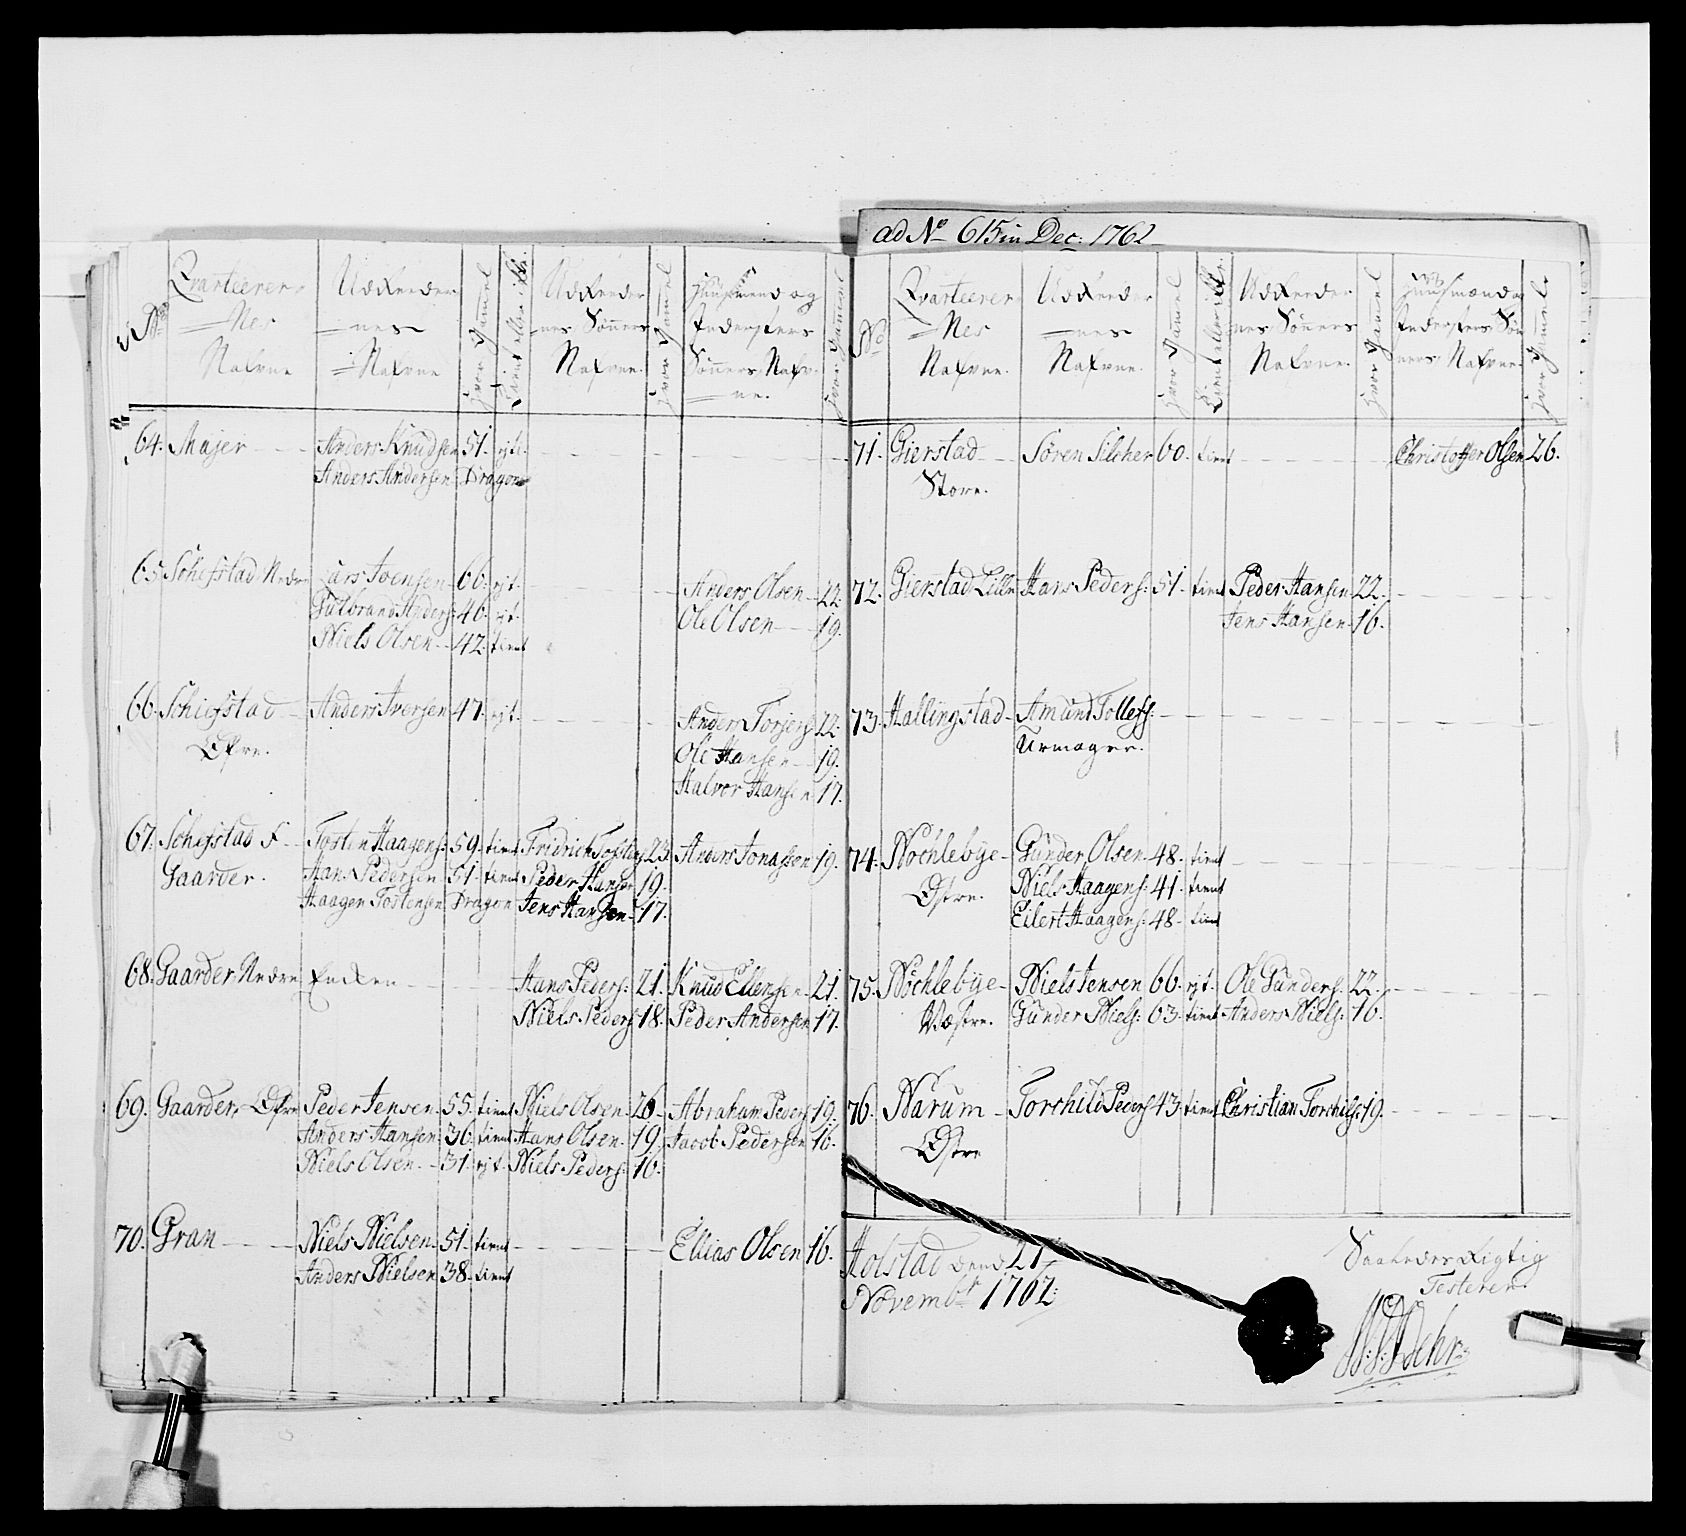 ad No 615 in Dec: 1762
No Qvarteerer= Nes Nafvne | Udreeder= nes Nafvne | Hvor Gammel | Tient eller ikke | Udreeder nes Sønners Nafvne | Hvor Gammel | Huusmænd og Indersters Sønners Nafv- ne. | Hvor Gammel
64. Majer Anders Knudsen 51. ejt.
Anders Andersen Dragon
65. Schefstad Nedre Lars Joensen 66. ejt. Anders Olsen 22.
Gulbrand Anders: 46. ejt. Ole Olsen 19.
Niels Olsen 42. tient
66. Schiefstad Anders Iversen 47. ejt. Anders Torjers: 22.
Øfre. Ole Hansen 19.
Halvor Hansen 17.
67. Schefstad F Tosten Haagens: 59. tient Fridrich Tostens 23. Anders Jonassen 19.
Gaarder. Hans Pedersen 51. tient Peder Hansen 19.
Haagen Tostensen Dragon Jens Hansen 17.
68. Gaarder Nedre Encken Hans Peders: 21. Knud Ellensen 21.
Niels Peders 18. Peder Andersen 17.
69. Gaarder Øfre Peder Jensen 55. tient Niels Olsen 26. Abraham Peders 19.
Anders Hansen 36. tient Hans Olsen 19. Jacob Pedersen 16.
Niels Olsen 31. ejt. Niels Peders: 16.
70. Gran Niels Nielsen 51. tient Ellias Olsen 16.
Anders Nielsen 38. tient
No Qvarteerer= Nes Nafvne. | Udreeder= nes Nafvne. | Hvor Gammel | Tient eller ikke. | Udreeder nes Sønners Nafvne. | Hvor Gammel | Huusmænd og Indersters Søn ners Nafvne. | Hvor Gammel
71. Gierstad Søren Silcher 60. tient Christoffer Olsen 26.
Store.
72. Gierstad Lille Hans Peders: 51. tient Peder Hansen 22.
Jens Hansen 16.
73. Hallingstad Amund Tollefs:
Urmager.
74. Nøchlebye Gunder Olsen 48. tient
Østre. Niels Haagens: 41. tient
Eilert Haagens: 48. tient
75. Nøchlebye Niels Jensen 66. ejt. Ole Gunders: 22.
Væstre. Gunder Niels: 63. tient Anders Niels: 16.
76. Narum Torchild Peders 43. tient Christian Torchilds: 19.
Østre
Holstad dend 27
Novembr 1762.
Saaledes Rigtig
Testerer.